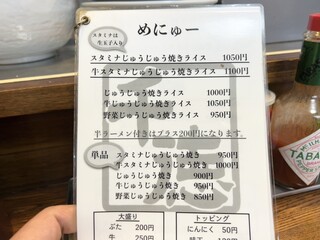 めにゅー
スタミナは
生玉子入り
スタミナじゅうじゅう焼きライス 1050円
牛スタミナじゅうじゅう焼きライス 1100円
じゅうじゅう焼きライス 1000円
牛じゅうじゅう焼きライス 1050円
野菜じゅうじゅう焼きライス 950円
半ラーメン付きはプラス200円になります。
単品
スタミナじゅうじゅう焼き 950円
牛スタミナじゅうじゅう焼き 1000円
じゅうじゅう焼き 900円
牛じゅうじゅう焼き 950円
野菜じゅうじゅう焼き 850円
大盛り
ぶた 200円
牛 250円
トッピング
にんにく 50円
TABA